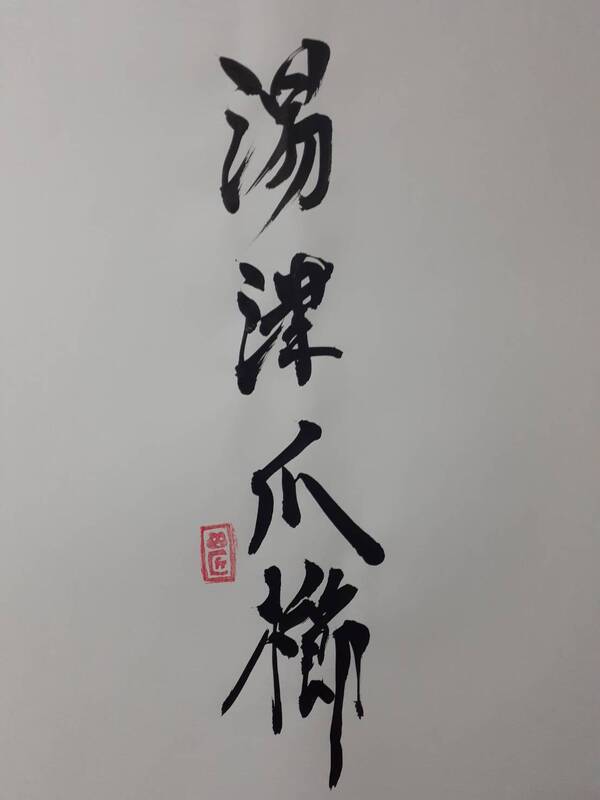 湯津爪櫛